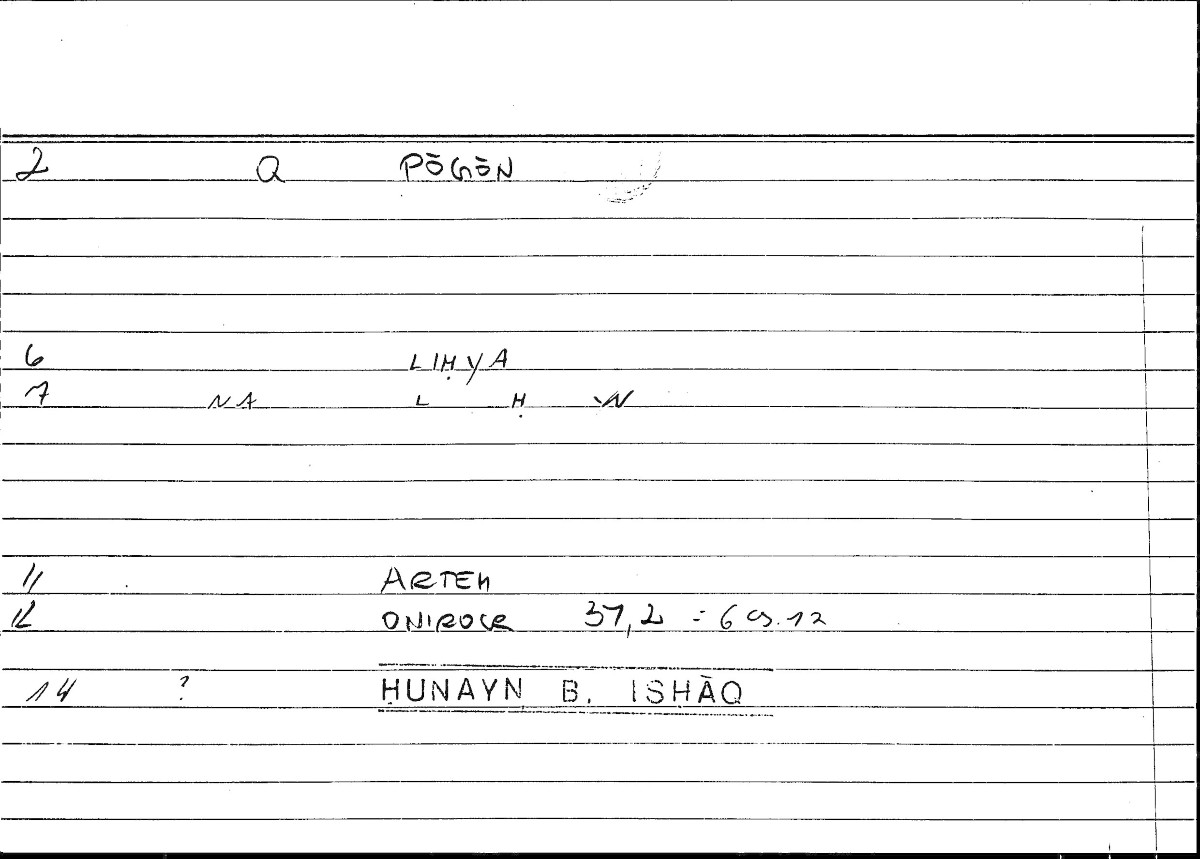 2 Q PŌGŌN
6 LIḤYA
7 NA L Ḥ W
11 ARTEM
12 ONIROCR 37,2 = 69.12
14 ? ḤUNAYN B. ISḤĀQ